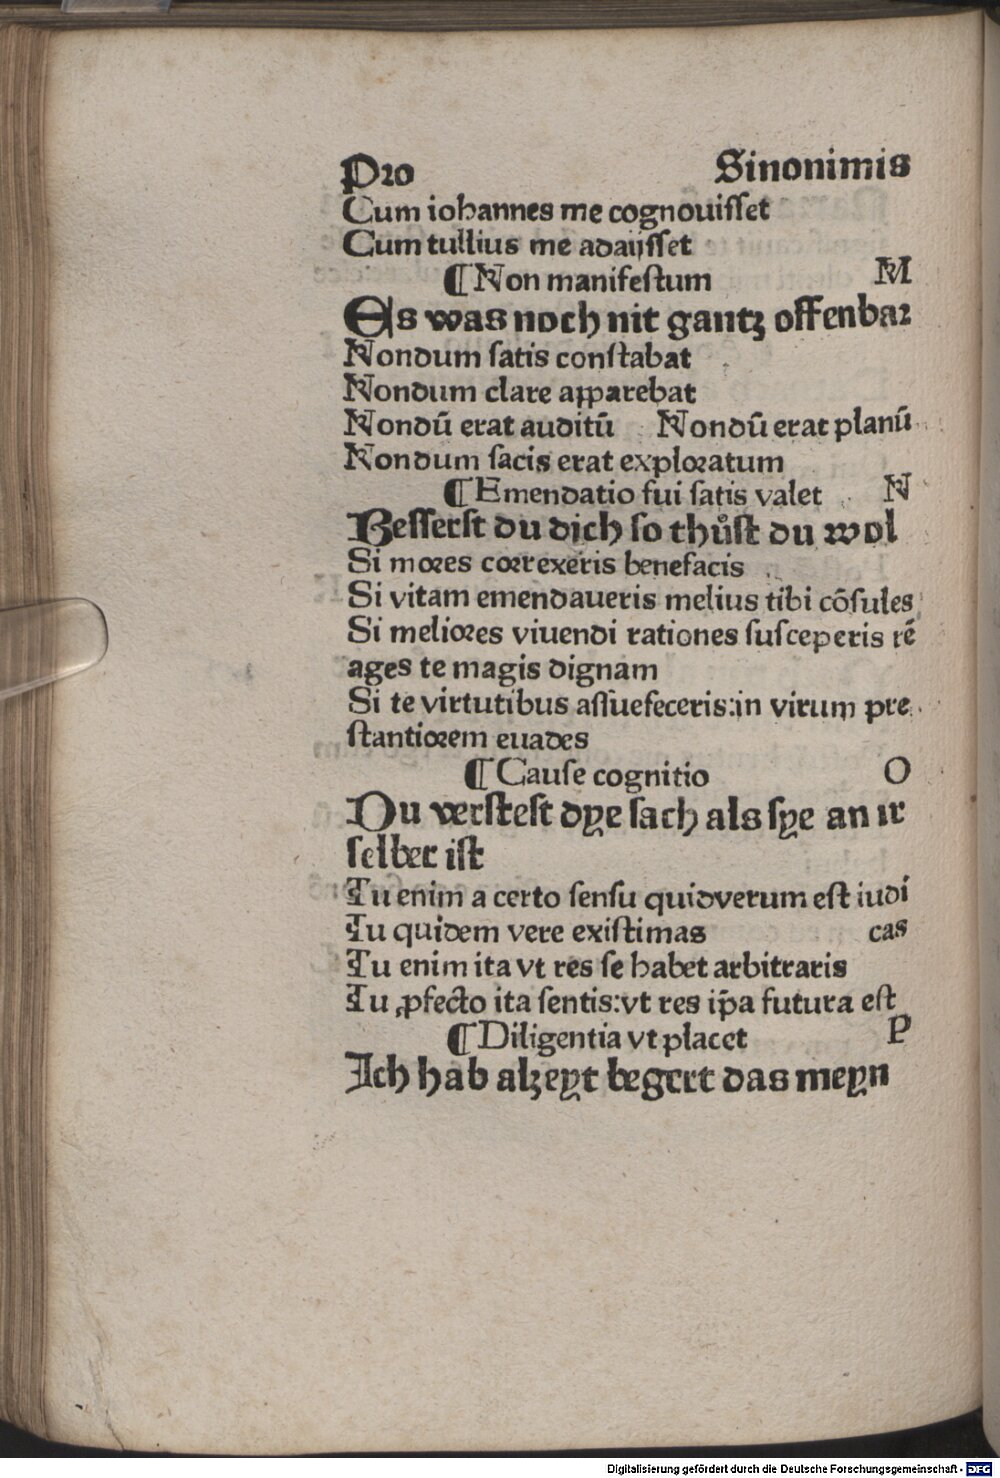 Pro Sinonimis
Cum iohannes me cognouiſſet
Cum tullius me adaijſſet
¶ Non manifeſtum M
Es was noch nit gantz offenbar
Nondum ſatis conſtabat
Nondum clare apparebat
Nondū erat auditū Nondū erat planū
Nondum ſacis erat exploratum
¶ Emendatio fui ſatis valet N
Beſſerſt du dich ſo thůſt du wol
Si mores correxeris benefacis
Si vitam emendaueris melius tibi cōſules
Si meliores viuendi rationes ſuſceperis rē
ages te magis dignam
Si te virtutibus aſſuefeceris:in virum pre
ſtantiorem euades
¶ Cauſe cognitio O
Du verſteſt dye ſach als ſye an ir
ſelber iſt
Tu enim a certo ſenſu quidverum eſt iudi
Tu quidem vere exiſtimas cas
Tu enim ita vt res ſe habet arbitraris
Tu ꝓfecto ita ſentis:vt res ip̄a futura eſt
¶ Diligentia vt placet P
Ich hab alzeyt begert das meyn
Digitalisierung gefördert durch die Deutsche Forschungsgemeinschaft - DFG